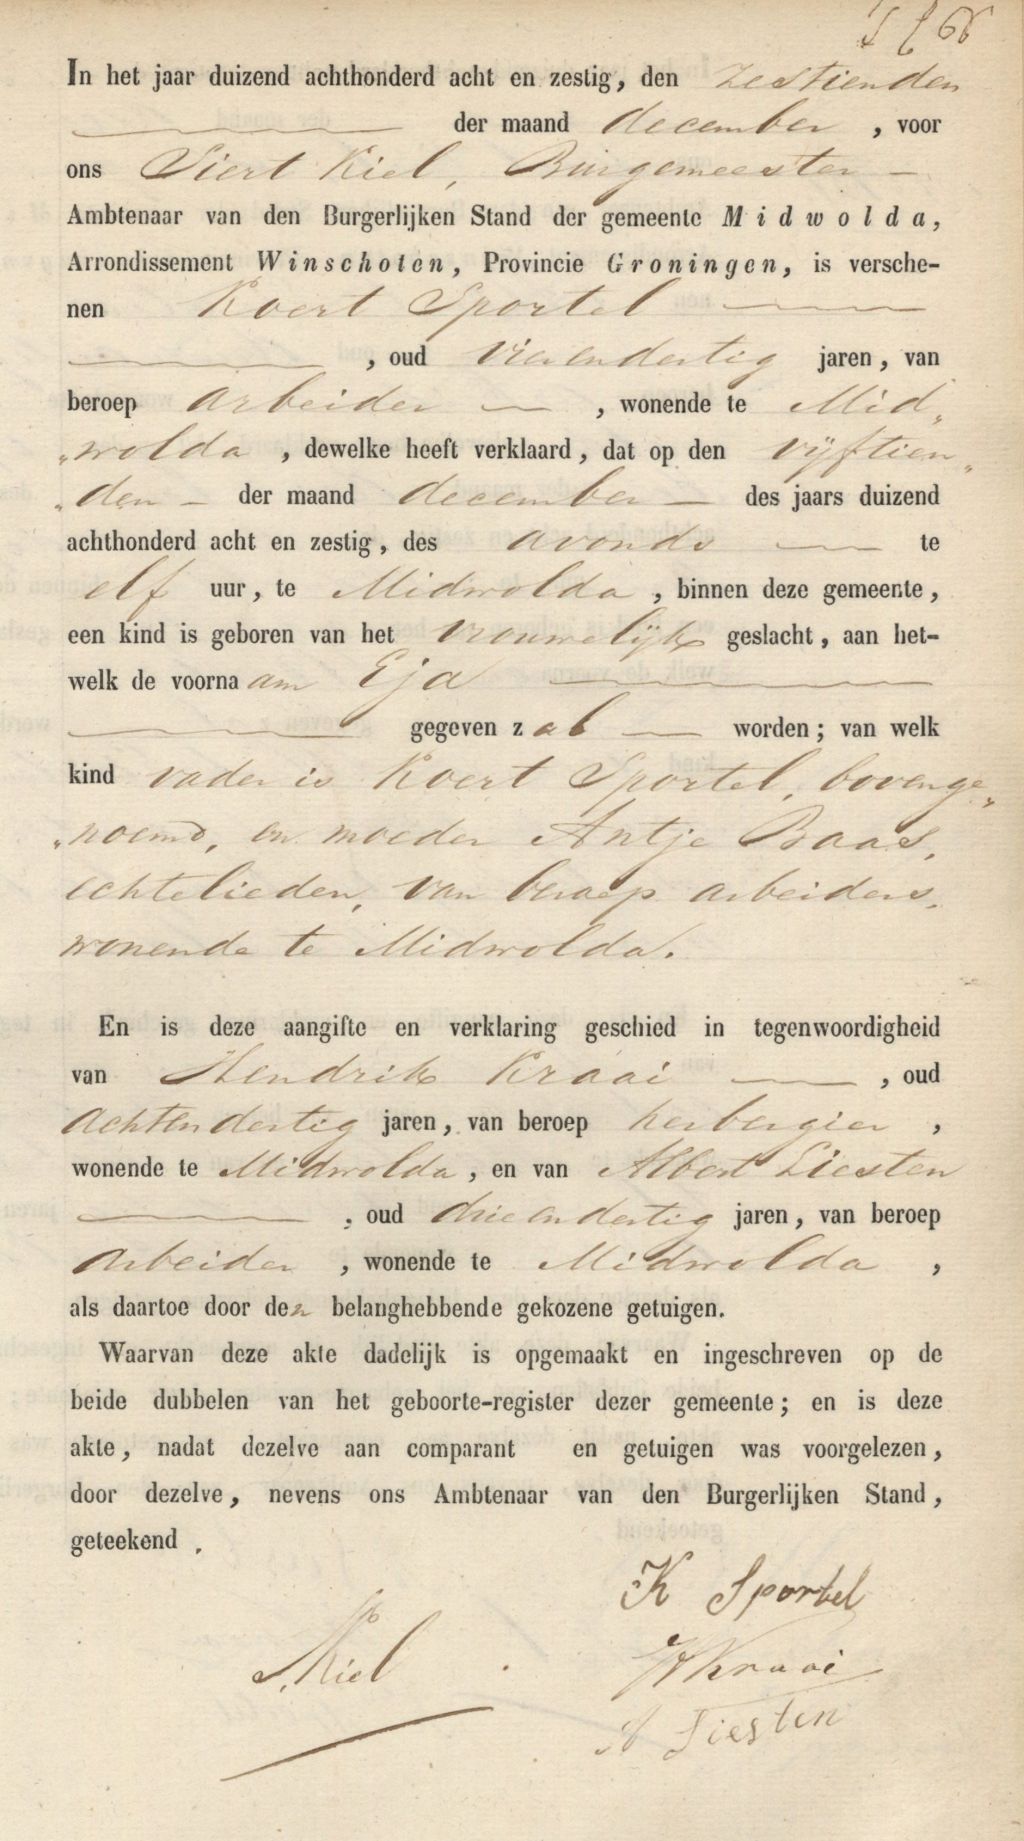 In het jaar duizend achthonderd acht en zestig, den zestienden
der maand december, voor
ons Siert Kiel, Burgemeester
Ambtenaar van den Burgerlijken Stand der gemeente Midwolda,
Arrondissement Winschoten, Provincie Groningen, is versche-
nen Koert Sportel
, oud vierendertig jaren, van
beroep arbeider, wonende te Mid„
„wolda, dewelke heeft verklaard, dat op den vijftien„
„den der maand december des jaars duizend
achthonderd acht en zestig, des avonds te
elf uur, te Midwolda, binnen deze gemeente,
een kind is geboren van het vrouwelijk geslacht, aan het-
welk de voornaam Eja
gegeven zal worden; van welk
kind vader is Koert Sportel, bovenge„
„noemd, en moeder Antje Baas,
echtelieden, van beroep arbeiders,
wonende te Midwolda.
En is deze aangifte en verklaring geschied in tegenwoordigheid
van Hendrik Kraai, oud
achtendertig jaren, van beroep herbergier,
wonende te Midwolda, en van Albert Tiesten
, oud drieendertig jaren, van beroep
arbeider, wonende te Midwolda,
als daartoe door den belanghebbende gekozene getuigen.
Waarvan deze akte dadelijk is opgemaakt en ingeschreven op de
beide dubbelen van het geboorte-register dezer gemeente; en is deze
akte, nadat dezelve aan comparant en getuigen was voorgelezen,
door dezelve, nevens ons Ambtenaar van den Burgerlijken Stand,
geteekend.
K Sportel
S. Kiel
H Kraai
A Tiesten